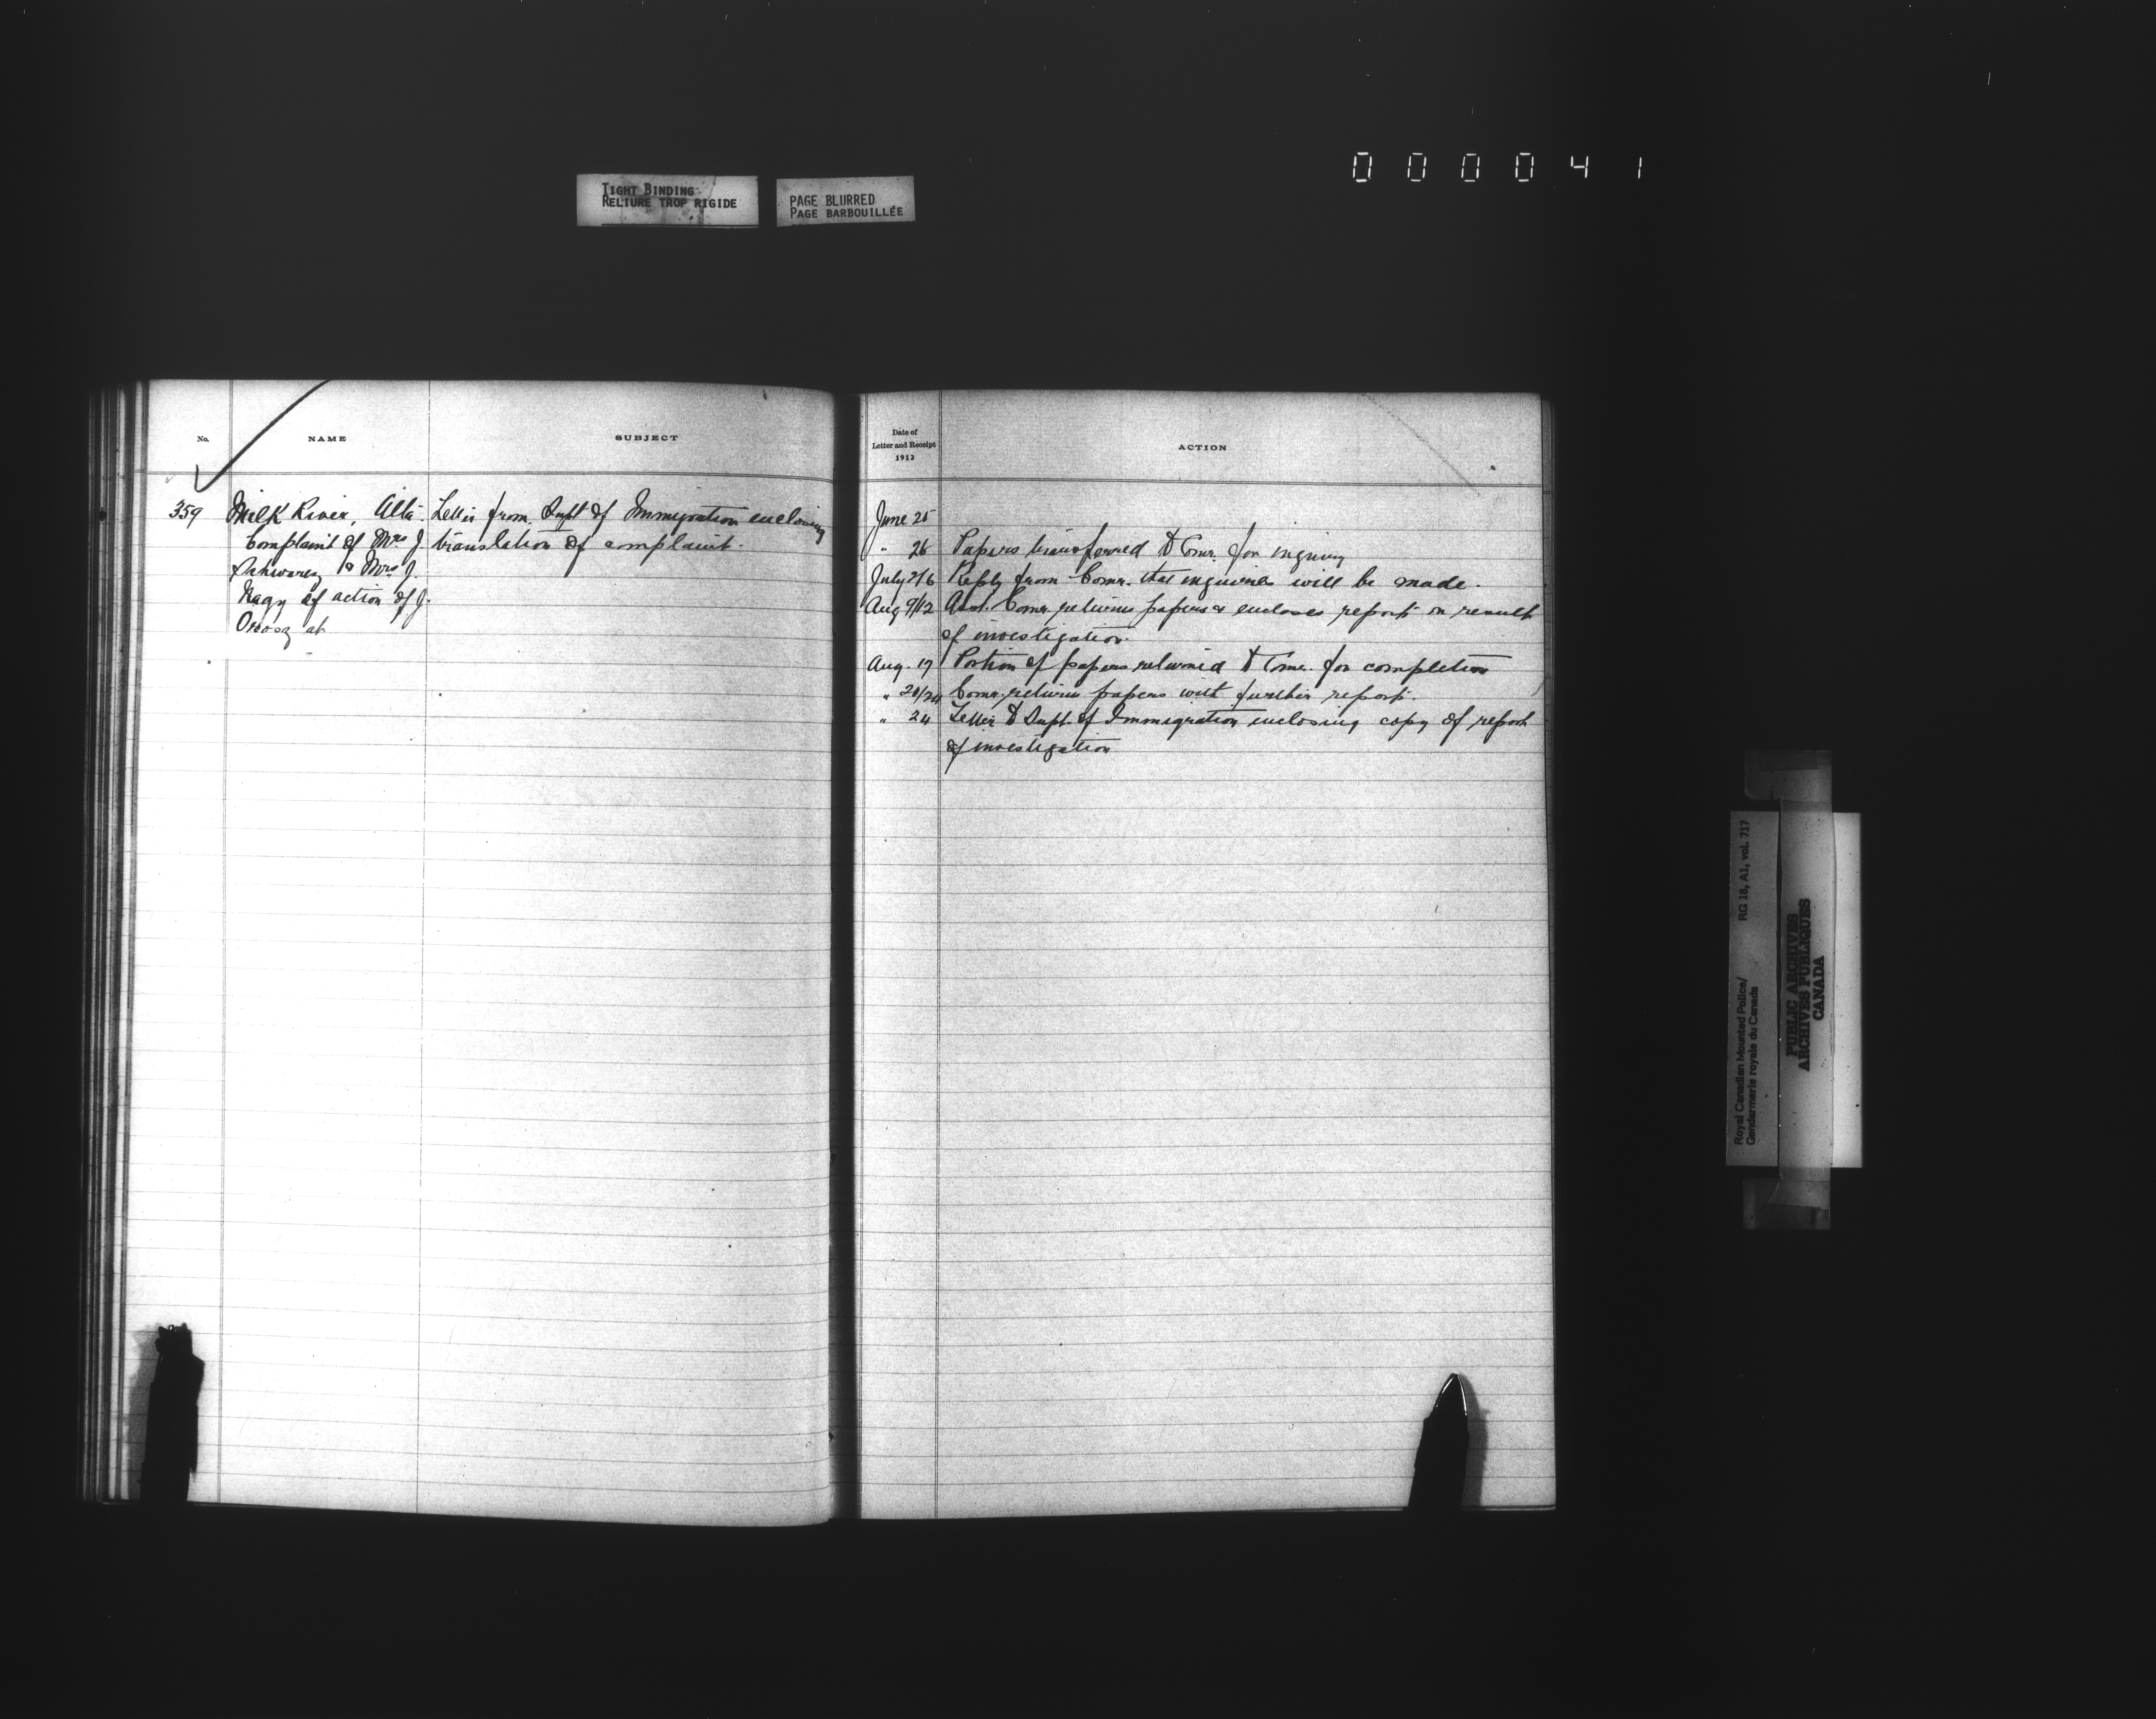 000041
TIGHT BINDING
RELIURE TROP RIGIDE
PAGE BLURRED
PAGE BARBOUILLÉE
No.
NAME
SUBJECT
359
Milk River, Alta.
Complaint of Mrs J.
Schwarez & Mrs J.
Nagy of action of J.
Orosz at
Letter from Supt of Immigration enclosing
translation of complaint.
Date of
Letter and Receipt
1912
ACTION
June 25
" 26 Papers transferred to Comr. for inquiry
July 2/6 Reply from Comr. that inquiries will be made.
Aug 9/12 Asst. Comr. returns papers & encloses report on result
of investigation.
Aug. 19 Portion of papers returned to Comr. for completion
" 20/24 Comr. returns papers with further report.
" 24 Letter to Supt. of Immigration enclosing copy of report
of investigation
Royal Canadian Mounted Police/
Gendarmerie royale du Canada
RG 18, A1, vol. 717
PUBLIC ARCHIVES
ARCHIVES PUBLIQUES
CANADA